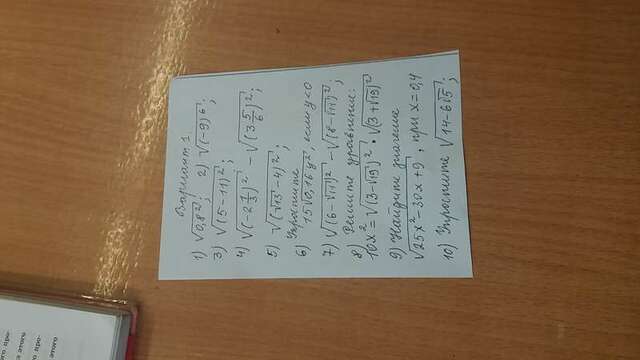 ого про-
а этого
го про-
этого
Вариант 1
1) √(0,8²); 2) √((-9)⁶);
3) √((5-11)²);
4) √((-2 1/3)²) - √((3 5/6)²);
5) √((√13-4)²);
6) Упростите
15√(0,16y²), если y<0
7) √((6-√11)²) - √((8-√11)²);
8) Решите уравнение:
10x² = √((3-√19)²) · √((3+√19)²)
9) Найдите значение
√(25x²-30x+9), при x=0,4
10) Упростите √(14-6√5);